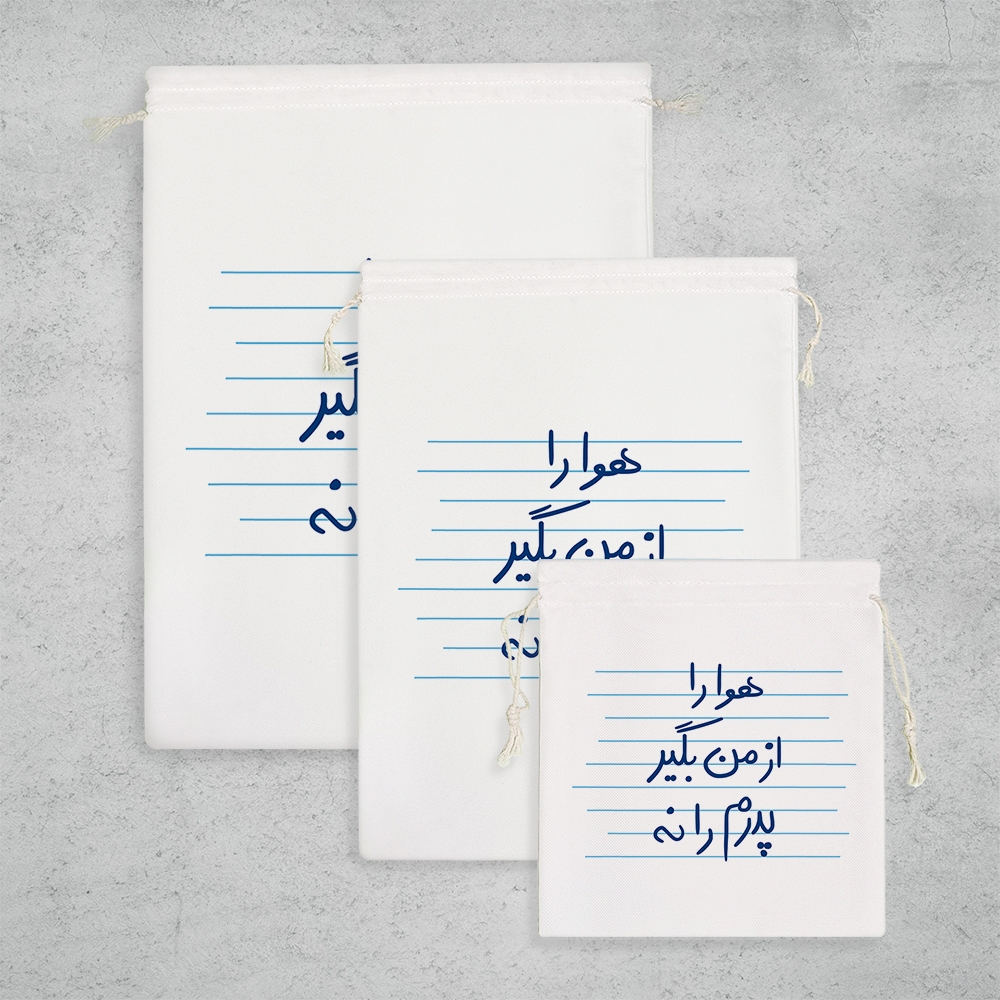 نه
هوا را
از من بگیر
نه
هوا را
از من بگیر
پدرم را نه